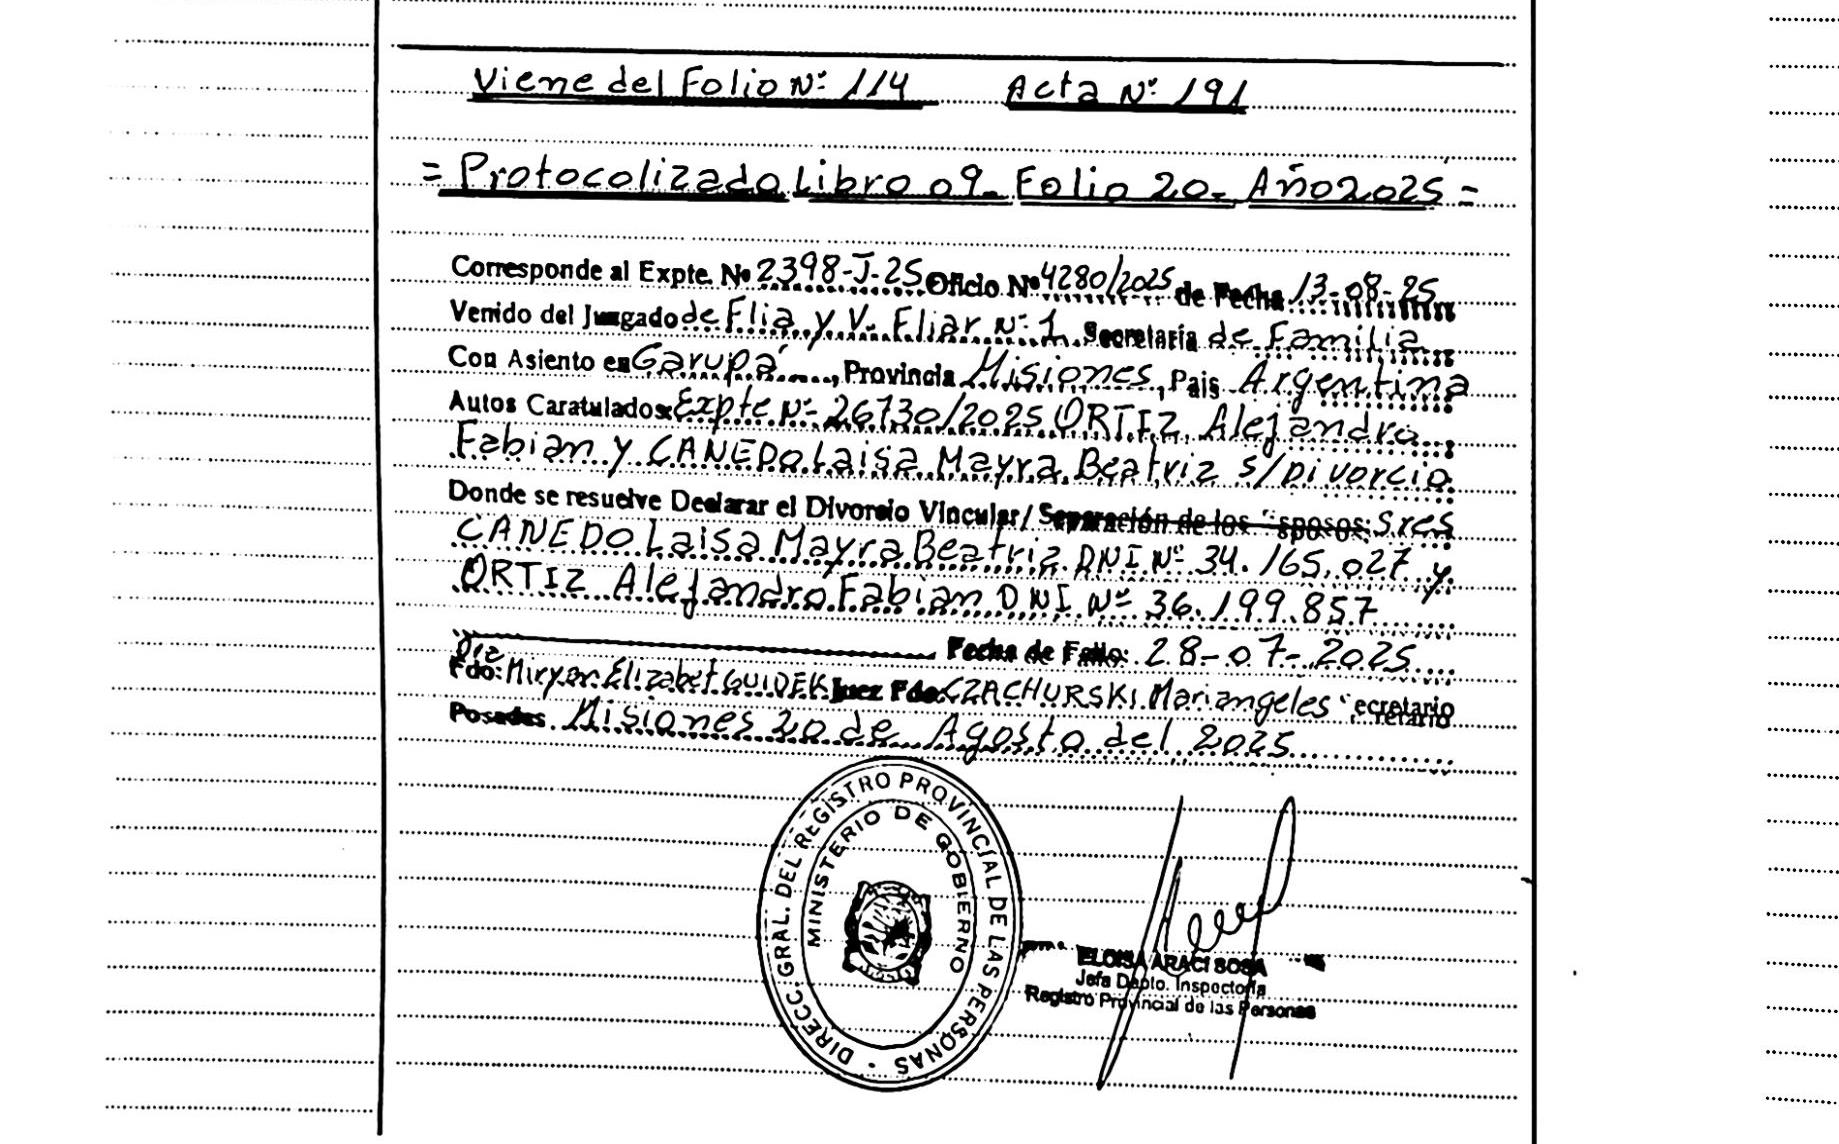 Viene del Folio Nº 114 Acta Nº 191
= Protocolizado Libro 09- Folio 20- Año 2025 =
Corresponde al Expte. Nº 2398-J-25 Oficio Nº 4280/2025 de Fecha 13-08-25
Venido del Juzgado de Flia y V. Fliar Nº 1 Secretaría de Familia
Con Asiento en Garupá, Provincia Misiones, Pais Argentina
Autos Caratulados: Expte Nº 26730/2025 ORTIZ Alejandro
Fabian y CANEDO Laisa Mayra Beatriz s/Divorcio
Donde se resuelve Declarar el Divorcio Vincular/ Separación de los sposos: Sres
CANEDO Laisa Mayra Beatriz DNI Nº 34.165.027 y
ORTIZ Alejandro Fabian DNI Nº 36.199.857
Fecha de Fallo: 28-07-2025
Dra
Fdo: Miryan Elizabet GUIDEK Juez Fdo: CZACHURSKI Mariangeles ecretario
Posadas Misiones 20 de Agosto del 2025
DIRECC. GRAL. DEL REGISTRO PROVINCIAL DE LAS PERSONAS
MINISTERIO DE GOBIERNO
ELOISA ARACI SOSA
Jefa Dapto. Inspectoría
Registro Provincial de las Personas